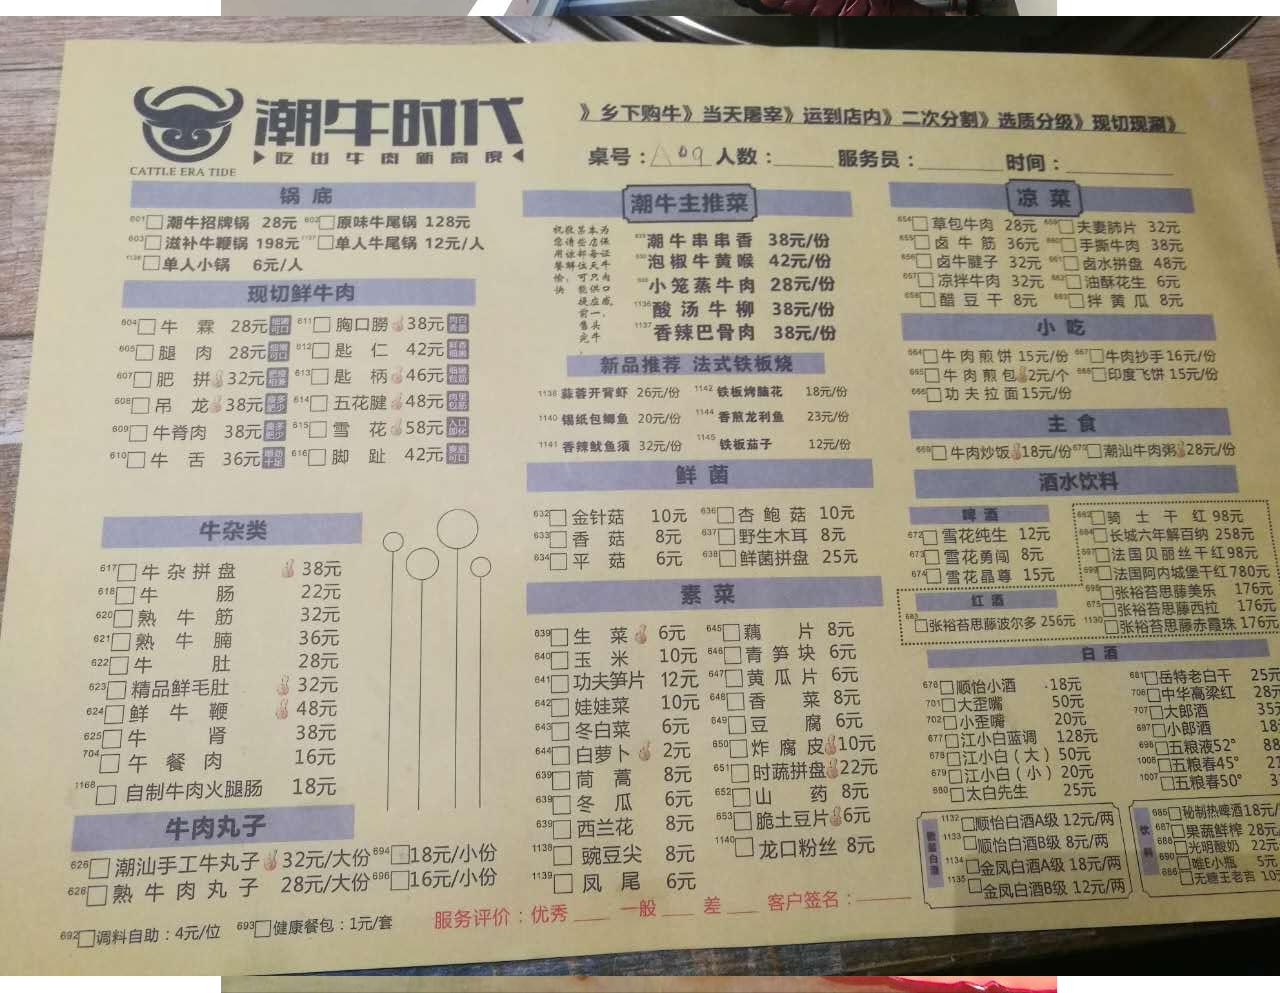 潮牛时代
吃出牛肉新高度
CATTLE ERA TIDE
》乡下购牛》当天屠宰》运到店内》二次分割》选质分级》现切现涮》
桌号：A09 人数：____ 服务员：____ 时间：____
锅底
601 潮牛招牌锅 28元 602 原味牛尾锅 128元
603 滋补牛鞭锅 198元 1137 单人牛尾锅 12元/人
1136 单人小锅 6元/人
现切鲜牛肉
604 牛霖 28元 细嫩可口 611 胸口朥 38元
605 腿肉 28元 细嫩可口 612 匙仁 42元
607 肥拼 32元 肥瘦相兼 613 匙柄 46元
608 吊龙 38元 瘦多肥少 614 五花腱 48元
609 牛脊肉 38元 瘦多肥少 615 雪花 58元 入口即化
610 牛舌 36元 嚼劲十足 616 脚趾 42元
牛杂类
617 牛杂拼盘 38元
618 牛肠 22元
620 熟牛筋 32元
621 熟牛腩 36元
622 牛肚 28元
623 精品鲜毛肚 32元
624 鲜牛鞭 48元
625 牛肾 38元
704 午餐肉 16元
1168 自制牛肉火腿肠 18元
牛肉丸子
626 潮汕手工牛丸子 32元/大份 694 18元/小份
628 熟牛肉丸子 28元/大份 696 16元/小份
692 调料自助：4元/位 693 健康餐包：1元/套
潮牛主推菜
潮牛串串香 38元/份
泡椒牛黄喉 42元/份
小笼蒸牛肉 28元/份
1136 酸汤牛柳 38元/份
1137 香辣巴骨肉 38元/份
新品推荐 法式铁板烧
1138 蒜蓉开背虾 26元/份 1142 铁板烤脑花 18元/份
1140 锡纸包鲫鱼 20元/份 1144 香煎龙利鱼 23元/份
1141 香辣鱿鱼须 32元/份 1145 铁板茄子 12元/份
鲜菌
632 金针菇 10元 636 杏鲍菇 10元
633 香菇 8元 637 野生木耳 8元
634 平菇 6元 638 鲜菌拼盘 25元
素菜
639 生菜 6元 645 藕片 8元
640 玉米 10元 646 青笋块 6元
641 功夫笋片 12元 647 黄瓜片 6元
642 娃娃菜 10元 648 香菜 8元
643 冬白菜 6元 649 豆腐 6元
644 白萝卜 2元 650 炸腐皮 10元
639 茼蒿 8元 651 时蔬拼盘 22元
639 冬瓜 6元 652 山药 8元
639 西兰花 8元 653 脆土豆片 6元
1138 豌豆尖 8元 1140 龙口粉丝 8元
1139 凤尾 6元
服务评价：优秀___ 一般___ 差___ 客户签名：____
凉菜
654 草包牛肉 28元 659 夫妻肺片 32元
655 卤牛筋 36元 660 手撕牛肉 38元
656 卤牛腱子 32元 661 卤水拼盘 48元
657 凉拌牛肉 32元 662 油酥花生 6元
658 醋豆干 8元 663 拌黄瓜 8元
小吃
664 牛肉煎饼 15元/份 667 牛肉抄手 16元/份
665 牛肉煎包 2元/个 668 印度飞饼 15元/份
666 功夫拉面 15元/份
主食
669 牛肉炒饭 18元/份 670 潮汕牛肉粥 28元/份
酒水饮料
啤酒
672 雪花纯生 12元
673 雪花勇闯 8元
674 雪花晶尊 15元
红酒
683 张裕苔思藤波尔多 256元
682 骑士干红 98元
684 长城六年解百纳 258元
697 法国贝丽丝干红 98元
699 法国阿内城堡干红 780元
张裕苔思藤美乐 176元
675 张裕苔思藤西拉 176元
1130 张裕苔思藤赤霞珠 176元
白酒
676 顺怡小酒 18元 681 岳特老白干 25元
701 大歪嘴 50元 706 中华高粱红 28元
702 小歪嘴 20元 707 大郎酒 35
677 江小白蓝调 128元 697 小郎酒 18
678 江小白（大）50元 698 五粮液52° 88
679 江小白（小）20元 1008 五粮春45° 21
680 太白先生 25元 1007 五粮春50° 3
散装白酒
1132 顺怡白酒A级 12元/两
1133 顺怡白酒B级 8元/两
1134 金凤白酒A级 18元/两
1135 金凤白酒B级 12元/两
饮料
685 秘制热啤酒 18元/
687 果蔬鲜榨 28元
688 光明酸奶 22元
690 唯E小瓶 5元
686 无糖王老吉 10元